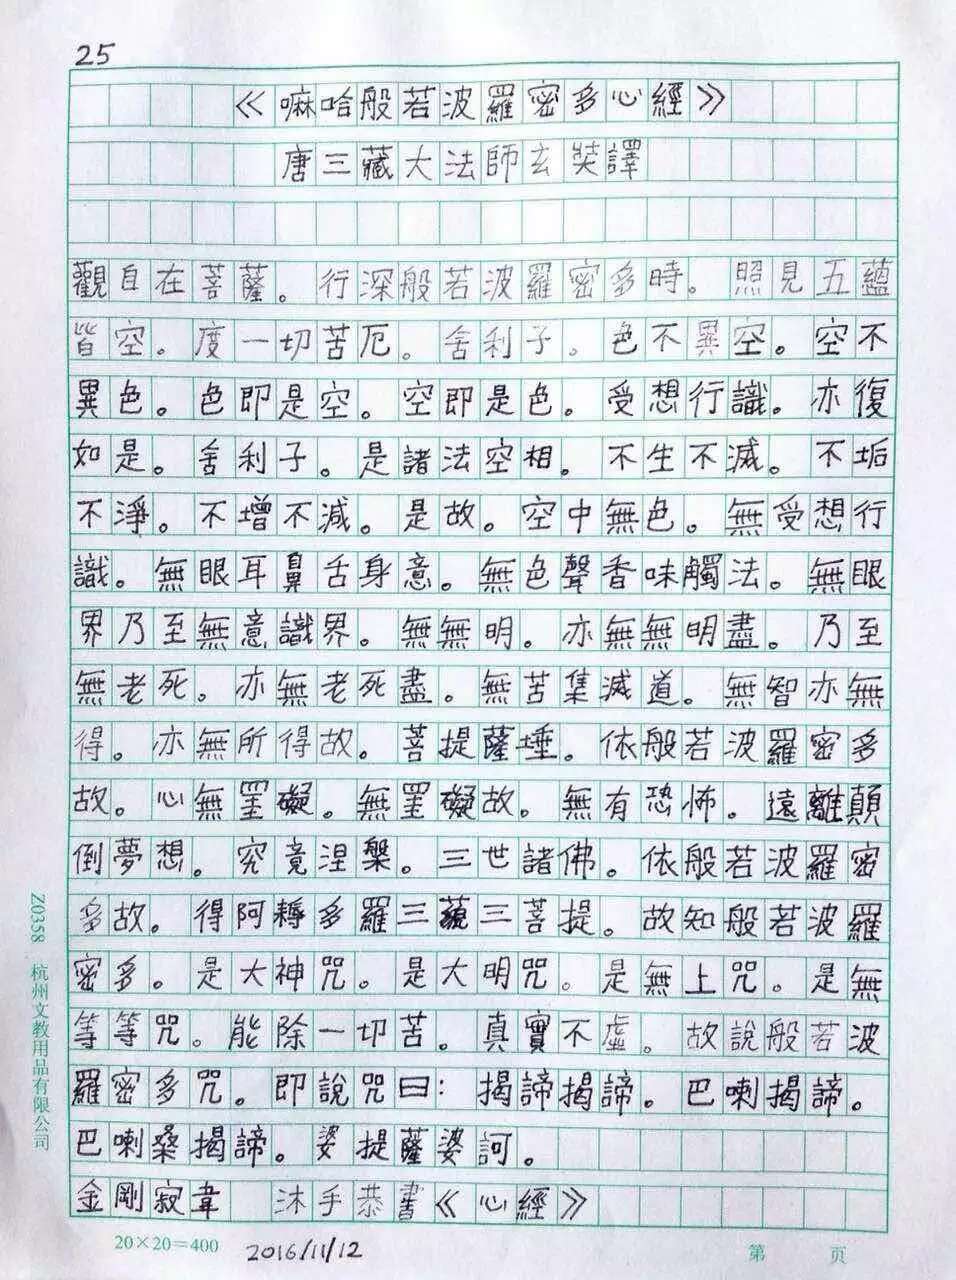 25
《嘛哈般若波羅密多心經》
唐三藏大法師玄奘譯
觀自在菩薩。行深般若波羅密多時。照見五蘊
皆空。度一切苦厄。舍利子。色不異空。空不
異色。色即是空。空即是色。受想行識。亦復
如是。舍利子。是諸法空相。不生不滅。不垢
不淨。不增不減。是故。空中無色。無受想行
識。無眼耳鼻舌身意。無色聲香味觸法。無眼
界乃至無意識界。無無明。亦無無明盡。乃至
無老死。亦無老死盡。無苦集滅道。無智亦無
得。亦無所得故。菩提薩埵。依般若波羅密多
故。心無罣礙。無罣礙故。無有恐怖。遠離顛
倒夢想。究竟涅槃。三世諸佛。依般若波羅密
多故。得阿耨多羅三藐三菩提。故知般若波羅
密多。是大神咒。是大明咒。是無上咒。是無
等等咒。能除一切苦。真實不虛。故說般若波
羅密多咒。即說咒曰：揭諦揭諦。巴喇揭諦。
巴喇桑揭諦。婆提薩婆訶。
金剛寂韋 沐手恭書《心經》
20×20=400 2016/11/12 第 页
Z0358 杭州文教用品有限公司